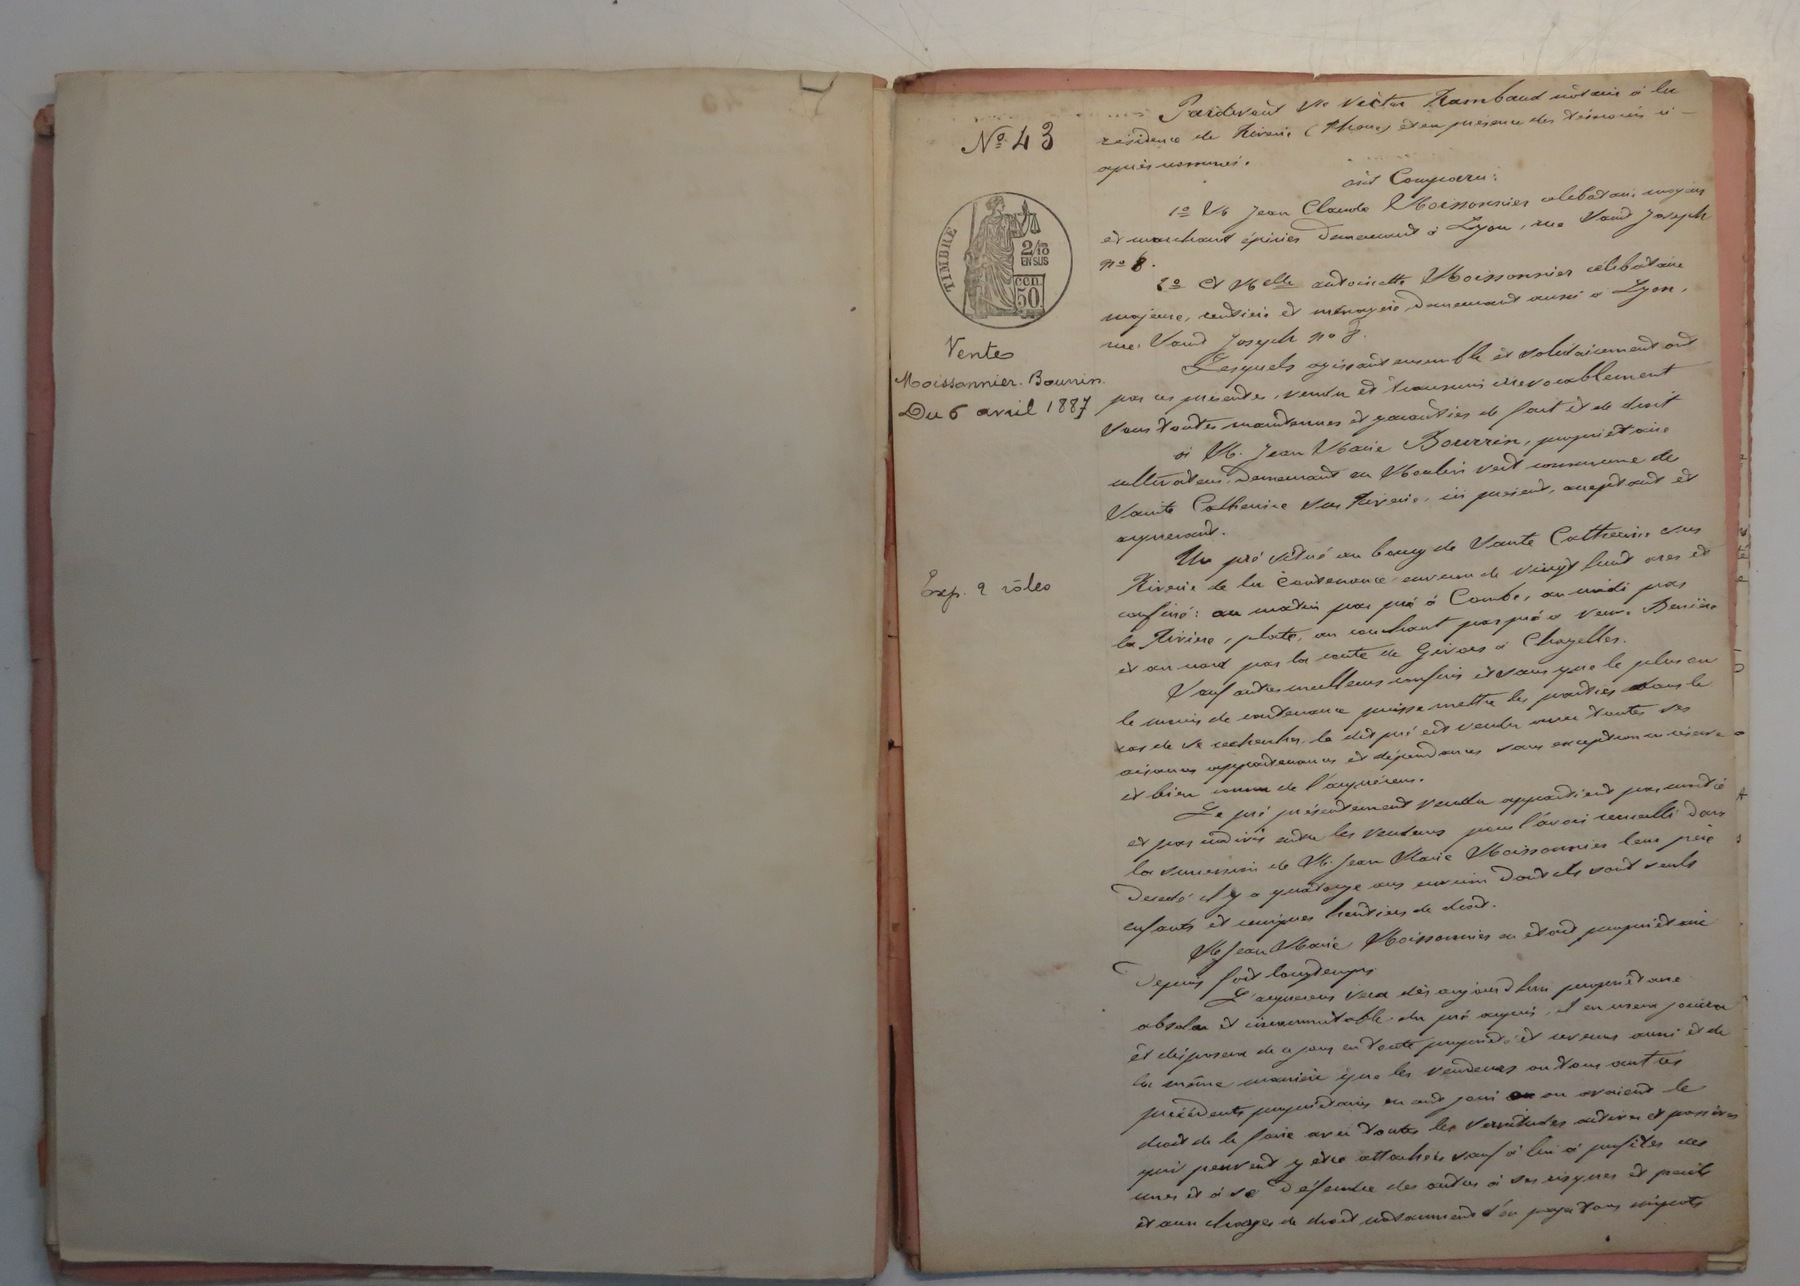 Nº 43
TIMBRE
2/10
EN SUS
cen.
50
Vente
Moissonnier. Bourrin.
Du 6 avril 1887
Exp. 2 rôles
Pardevant Me Victor Rambaud notaire à la
résidence de Riverie (Rhône) et en présence des témoins ci-
après nommés.
ont Comparu:
1º M. Jean Claude Moissonnier célibataire majeur
et marchand épicier demeurant à Lyon, rue Saint Joseph
nº 8.
2º Et Melle antoinette Moissonnier célibataire
majeure, rentière et ménagère, demeurant aussi à Lyon,
rue Saint Joseph nº 8.
Lesquels agissant ensemble et solidairement ont
par ces présentes, vendu et transmis irrévocablement
sous toutes maintenues et garanties de fait et de droit
à M. Jean Marie Bourrin, propriétaire
cultivateur, demeurant au Moulin vert commune de
Sainte Catherine sur Riverie, ici présent, acceptant et
acquérant.
Un pré situé au bourg de Sainte Catherine sur
Riverie de la contenance environ de vingt huit ares et
confiné: au matin par pré à Combe, au midi par
la Rivière, plate, au couchant par pré à veuve
et au nord par la route de Givors à Chazelles.
Sauf autres meilleurs confins et sans que le plus ou
le moins de contenance puisse mettre les parties dans le
cas de se rechercher, le dit pré est vendu avec toutes ses
aisances appartenances et dépendances sans exception ni réserve
et bien connu de l'acquéreur.
Le pré présentement vendu appartient par moitié
et par indivis entre les vendeurs pour l'avoir recueilli dans
la succession de M. Jean Marie Moissonnier leur père
décédé il y a quatorze ans environ dont ils sont seuls
enfants et uniques héritiers de droit.
M. Jean Marie Moissonnier en était propriétaire
depuis fort longtemps.
L'acquéreur sera dès aujourd'hui propriétaire
absolu et incommutable du pré acquis, il en usera jouira
et disposera de ce jour en toute propriété et revenus ainsi et de
la même manière que les vendeurs ou tous autres
précédents propriétaires en ont joui ou avaient le
droit de le faire avec toutes les servitudes actives et passives
qui peuvent y être attachées sauf à lui à profiter des
unes et à se défendre des autres à ses risques et périls
et aux charges de droit notamment d'en payer tous impots